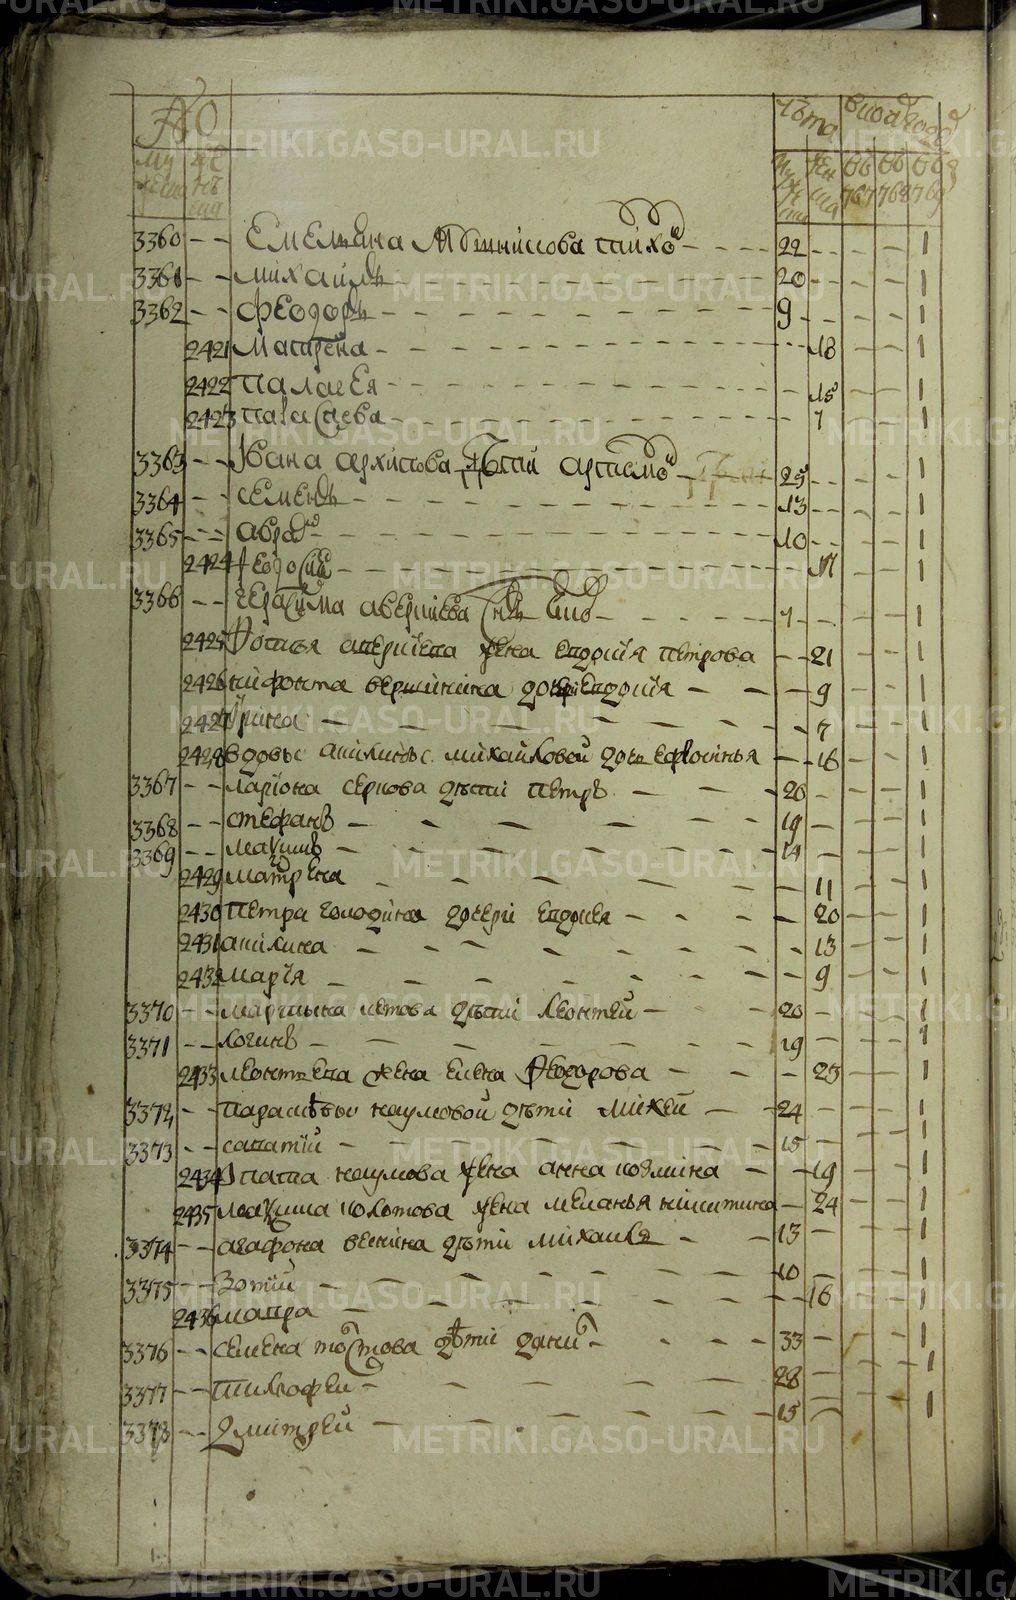 №
Лѣта
в 767
в 768
в 769
3360 Емельяна 22 1
3361 Михаилъ 20 1
3362 Феодоръ 9 1
2421 Матрена 18 1
2422 Палагея 15 1
2423 7 1
3363 Ивана Архипова дѣти Артемо 25 1
3364 Семенъ 13 1
3365 Авраа 10 1
2424 Федосия 1
3366 Герасима сынъ 1
2425 Фотея жена Евдокия Петрова 21 1
2426 Нифонта Вершинина дочь Евдокия 9 1
2427 Ирина 7 1
2428 вдовы Акилины Михайловой дочь Ефросинья 16 1
3367 Лариона Серкова дѣти Петръ 20 1
3368 Стефанъ 19 1
3369 Макимъ 14 1
2429 Матрена 11 1
2430 Петра Голодина дочери Евдокея 20 1
2431 Акилина 13 1
2432 Марїя 9 1
3370 Мартына дѣти Леонтей 20 1
3371 Логинъ 19 1
2433 Леонтьева жена Елена Феодорова 25 1
3372 Парасковьи Наумовой дѣти Михей 24 1
3373 Саватїй 15 1
2434 Наумова жена Анна Козмина 19 1
2435 Макима жена Меланья Никитина 24 1
3374 Агафона дѣти Михаила 13 1
3375 Зотїй 10 1
2436 Мавра 16 1
3376 Семена Толстова дѣти Дани 33 1
3377 Тимофей 28 1
3378 Дмитрей 15 1
METRIKI.GASO-URAL.RU